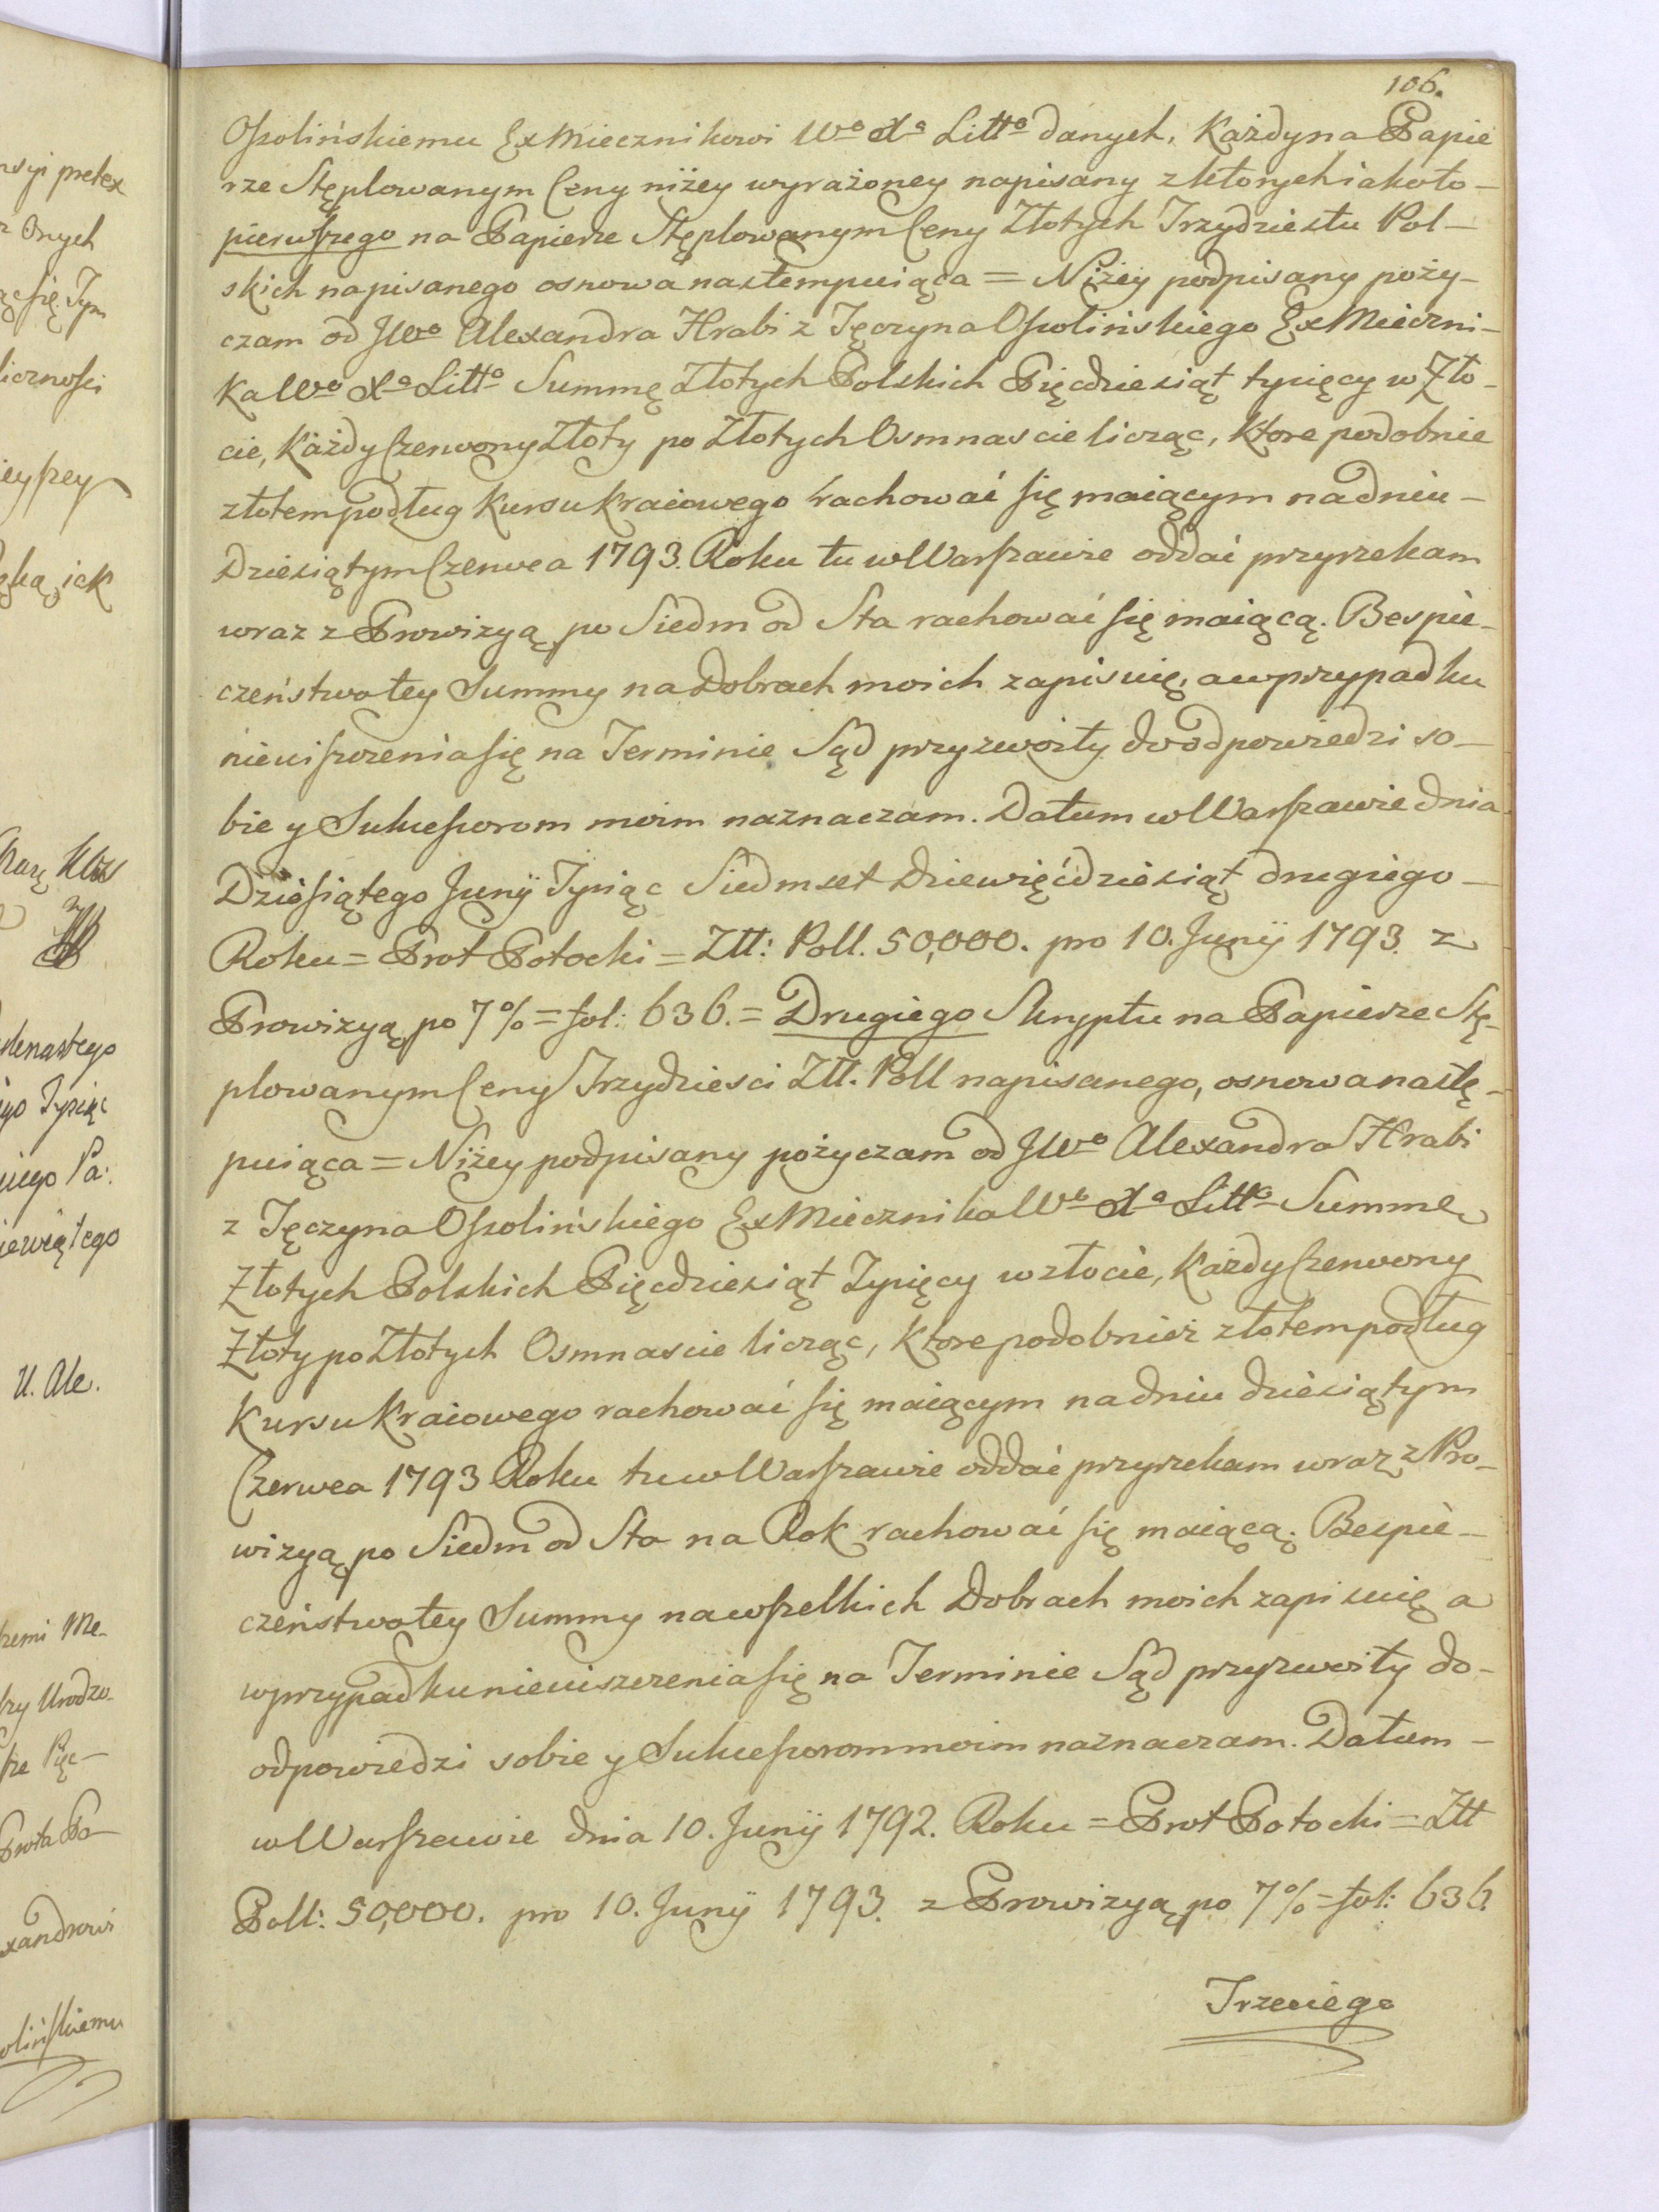 106.
Ossolińskiemu ExMiecznikowi Wo Xa Litto danych, Każdy na Papie
rze Stęplowanym Ceny niżey wyrażoney napisany z ktorych iako to –
pierwszego na Papierze Stęplowanym Ceny Złotych Trzydziestu Pol –
skich napisanego osnowa nastempuiąca = Niżey podpisany poży –
czam od JWo Alexandra Hrabi z Tęczyna Ossolińskiego ExMieczni –
ka Wo Xa Litto Summę Złotych Polskich Pięcdziesiąt tysięcy w Zło –
cie, Każdy Czerwony Złoty po Złotych Osmnascie licząc, Ktore podobnie
złotem podług Kursu Kraiowego rachować się maiącym na dniu –
Dziesiątym Czerwca 1793. Roku tu w Warszawie oddać przyrzekam
wraz z Prowizyą po Siedm od Sta rachować się maiącą. Bespie –
czeństwo tey Summy na Dobrach moich zapisuię, a w przypadku
nieuiszczenia się na Terminie Sąd przyzwoity do odpowiedzi so –
bie y Sukcessorom moim naznaczam. Datum w Warszawie dnia
Dziesiątego Junÿ Tysiąc Siedmset Dziewięćdziesiąt drugiego –
Roku = Prot Potocki = Złł: Poll. 50,000. pro 10. Junÿ 1793. z
Prowizyą po 7 % = fol: 636. = Drugiego Skryptu na Papierze Stę –
plowanym Ceny Trzydziesci Złł. Poll napisanego, osnowa nastę –
puiąca = Niżey podpisany pożyczam od JWo Alexandra Hrabi
z Tęczyna Ossolińskiego ExMiecznika Wo Xa Litto Summę
Złotych Polskich Pięcdziesiąt Tysięcy w złocie, Każdy Czerwony
Złoty po Złotych Osmnascie licząc, Ktore podobnież złotem podług
Kursu Kraiowego rachować się maiącym na dniu dziesiątym
Czerwca 1793 Roku tu w Warszawie oddać przyrzekam wraz z Pro –
wizyą po Siedm od Sta na Rok rachować się maiącą. Bespie –
czeństwo tey Summy na wszelkich Dobrach moich zapisuię a
w przypadku nieuiszczenia się na Terminie Sąd przyzwoity do –
odpowiedzi sobie y Sukcessorom moim naznaczam. Datum –
w Warszawie dnia 10. Junÿ 1792. Roku = Prot Potocki = Złł
Poll: 50,000. pro 10. Junÿ 1793. z Prowizyą po 7 % = fol: 636.
Trzeciego